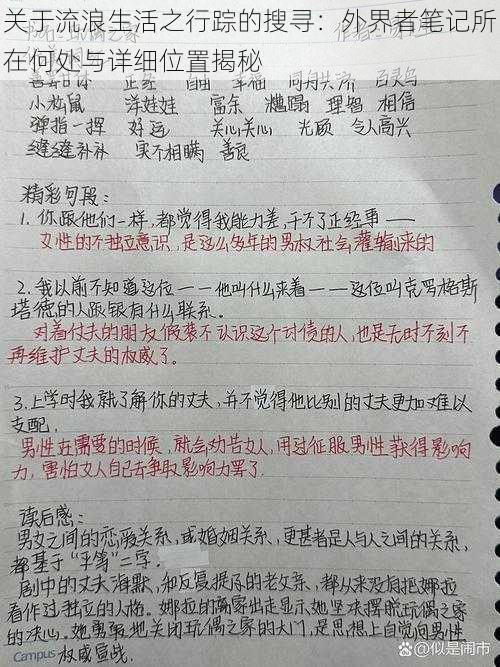 关于流浪生活之行踪的搜寻：外界者笔记所
在何处与详细位置揭秘
小松鼠 洋娃娃 富余 糟蹋 理智 相信
弹指一挥 好运 关心关心 光顾 令人高兴
缝缝补补 实不相瞒 善良
精彩句段：
1. 你跟他们一样，都觉得我能力差，干不了正经事——
女性的不独立意识，是这么多年的男权社会灌输来的
2. 我以前不知道这位——他叫什么来着——这位叫克罗格斯
塔德的人跟银有什么联系。
对着丈夫的朋友假装不认识这个讨债的人，也是无时不刻不
再维护丈夫的权威了。
3. 上学时我就了解你的丈夫，并不觉得他比别的丈夫更加难以
支配，
男性在需要的时候，就会劝告女人，用过征服男性获得影响
力，害怕女人自己去争取影响力罢了
读后感：
男女之间的恋爱关系，或婚姻关系，更甚者是人与人之间的关系，
都基于“平等”二字。
剧中的丈夫海默，和反复提及的老父亲，都从来没有把娜拉
看作过独立的人格。娜拉的离家出走显示她坚决摆脱玩偶之家
的决心。她勇敢地关闭玩偶之家的大门，是思想上自觉向男性
Campus 权威宣战.
@似是闹市